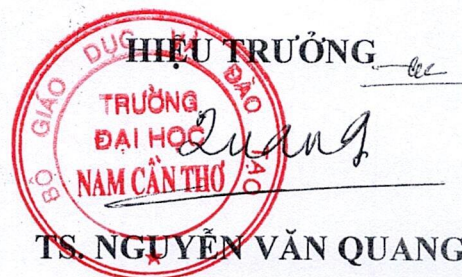 HIỆU TRƯỞNG
BỘ GIÁO DỤC VÀ ĐÀO TẠO
TRƯỜNG
ĐẠI HỌC
NAM CẦN THƠ
Quang
TS. NGUYỄN VĂN QUANG